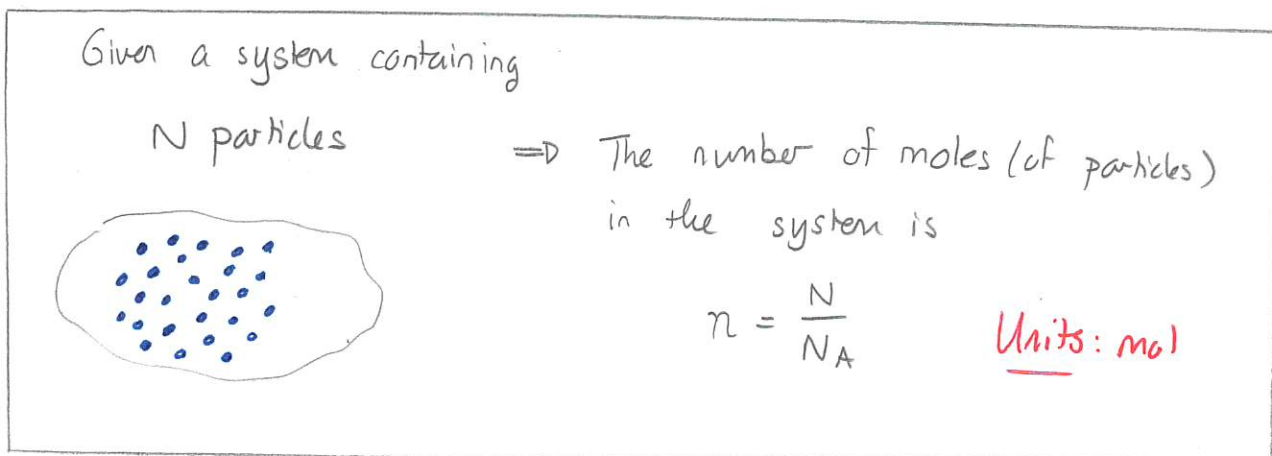 Given a system containing
N particles
⇒ The number of moles (of particles)
in the system is
n = N/N_A
Units: mol